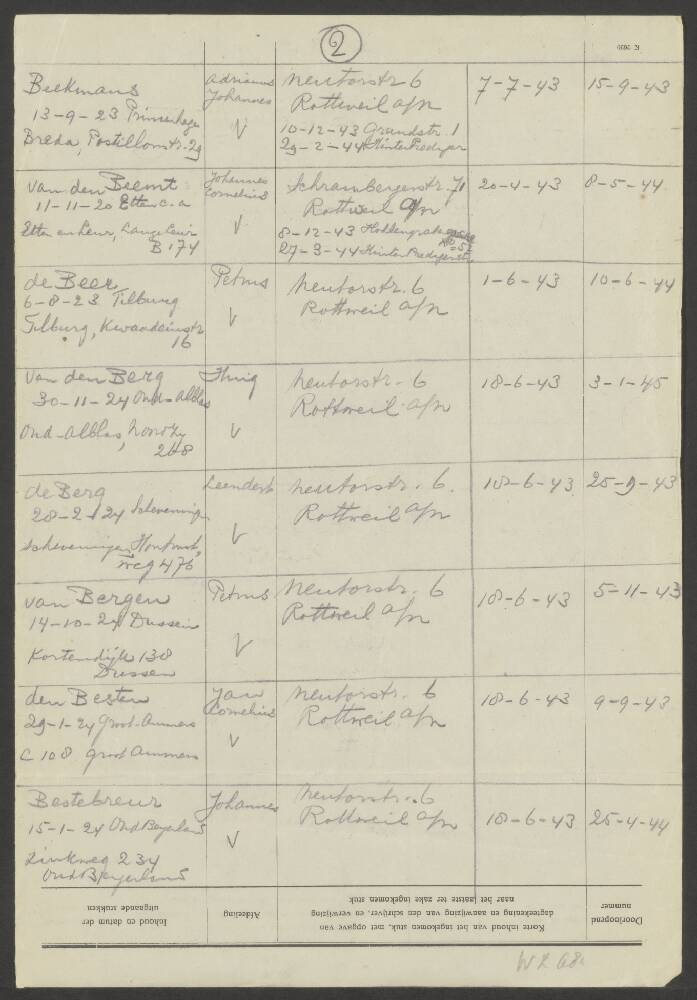 2
Beekmans Adrianus Neutorstr 6 7-7-43 15-9-43
Johannes Rottweil a/n
13-9-23 Prinsenhage
V 10-12-43 Grundstr. 1
Breda, Postillonstr. 29 29-2-44 Hinter Prediger
van den Beemt Johannes Schrambergerstr. 71 20-4-43 8-5-44
Cornelius Rottweil a/n
11-11-20 Etten c.a
V 8-12-43 Hohlengrabengasse
Etten en Leur, Lange Leur 27-3-44 Hinter Predigerstr.
B 174
de Beer Petrus Neutorstr. 6 1-6-43 10-6-44
6-8-23 Tilburg Rottweil a/n
V
Tilburg, Kwaadeindstr
16
van den Berg Neutorstr. 6 18-6-43 3-1-45
30-11-24 Oud-Alblas Rottweil a/n
V
Oud-Alblas,
268
de Berg Leendert Neutorstr. 6. 18-6-43 25-9-43
28-2-24 Scheveningen Rottweil a/n
V
Scheveningen,
weg 476
van Bergen Petrus Neutorstr. 6 18-6-43 5-11-43
14-10-24 Dussen Rottweil a/n
V
Kortendijk 138
Dussen
den Besten Jan Neutorstr. 6 18-6-43 9-9-43
Cornelius Rottweil a/n
29-1-24 Groot-Ammers
V
C 108 Groot Ammers
Bestebreur Johannes Neutorstr. 6 18-6-43 25-4-44
15-1-24 Oud Beyerland Rottweil a/n
V
Zinkweg 234
Oud Beyerland
Doorloopend nummer
Korte inhoud van het ingekomen stuk, met opgave van
dagteekening en aanwijzing van den schrijver, en verwijzing
naar het laatste ter zake ingekomen stuk
Afdeeling
Inhoud en datum der
uitgaande stukken